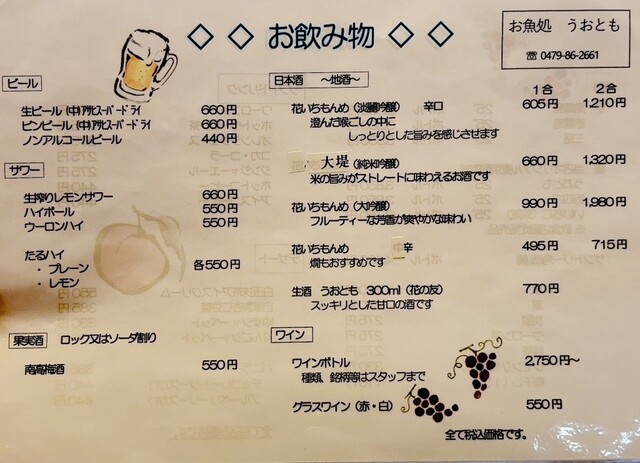 ◇ ◇ お飲み物 ◇ ◇
お魚処 うおとも
☏ 0479-86-2661
ビール
生ビール (中)アサヒスーパードライ 660円
ビンビール (中)アサヒスーパードライ 660円
ノンアルコールビール 440円
サワー
生搾りレモンサワー 660円
ハイボール 550円
ウーロンハイ 550円
たるハイ
・ プレーン 各550円
・ レモン
果実酒 ロック又はソーダ割り
南高梅酒 550円
日本酒 ～地酒～
1合 2合
花いちもんめ (淡麗吟醸) 辛口 605円 1,210円
澄んだ喉ごしの中に
しっとりとした旨みを感じさせます
大堤 (純米吟醸) 660円 1,320円
米の旨みがストレートに味わえるお酒です
花いちもんめ (大吟醸) 990円 1,980円
フルーティーな芳香が爽やかな味わい
花いちもんめ 中辛 495円 715円
燗もおすすめです
生酒 うおとも 300ml (花の友) 770円
スッキリとした甘口の酒です
ワイン
ワインボトル 2,750円～
種類、銘柄等はスタッフまで
グラスワイン (赤・白) 550円
全て税込価格です。